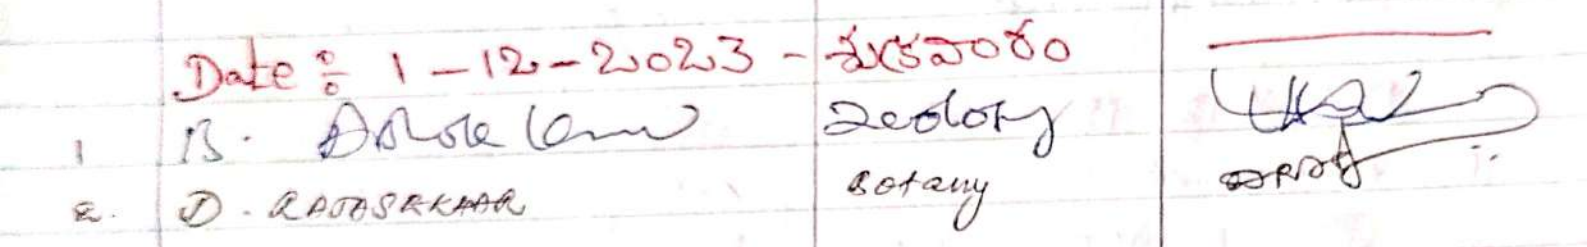 Date : 1-12-2023 - శుక్రవారం
1 B. Ashok Kumar Zoology
2. D. RAJASEKHAR Botany